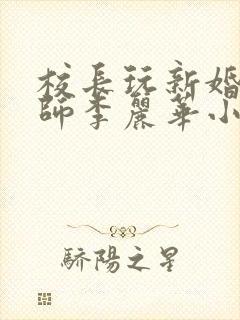 校長玩新婚
師李麗華小
驕陽之星